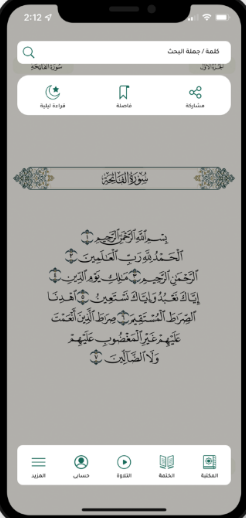 2:12
كلمة / جملة البحث
سورة الفاتحة
مشاركة
فاصلة
قراءة ليلية
سُورَةُ الفَاتِحَةِ
بِسْمِ اللَّهِ الرَّحْمَٰنِ الرَّحِيمِ ١
الْحَمْدُ لِلَّهِ رَبِّ الْعَالَمِينَ ٢
الرَّحْمَٰنِ الرَّحِيمِ ٣ مَالِكِ يَوْمِ الدِّينِ ٤
إِيَّاكَ نَعْبُدُ وَإِيَّاكَ نَسْتَعِينُ ٥ اهْدِنَا
الصِّرَاطَ الْمُسْتَقِيمَ ٦ صِرَاطَ الَّذِينَ أَنْعَمْتَ
عَلَيْهِمْ غَيْرِ الْمَغْضُوبِ عَلَيْهِمْ
وَلَا الضَّالِّينَ ٧
المكتبة
الختمة
التلاوة
حسابي
المزيد